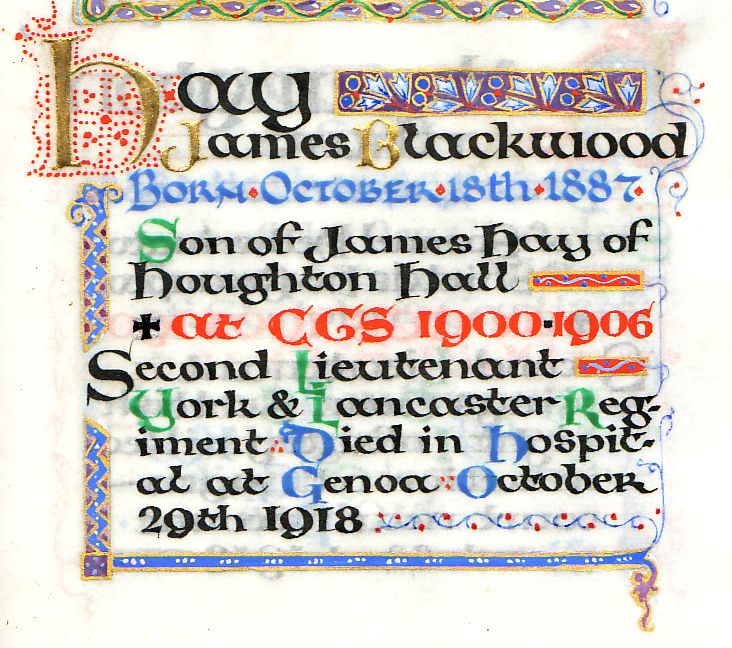 Hay
James Blackwood
Born·October·18th·1887·
Son of James Hay of
Houghton Hall
✠ at CGS 1900·1906
Second Lieutenant
York & Lancaster Reg-
iment Died in Hospit-
al at Genoa October
29th 1918